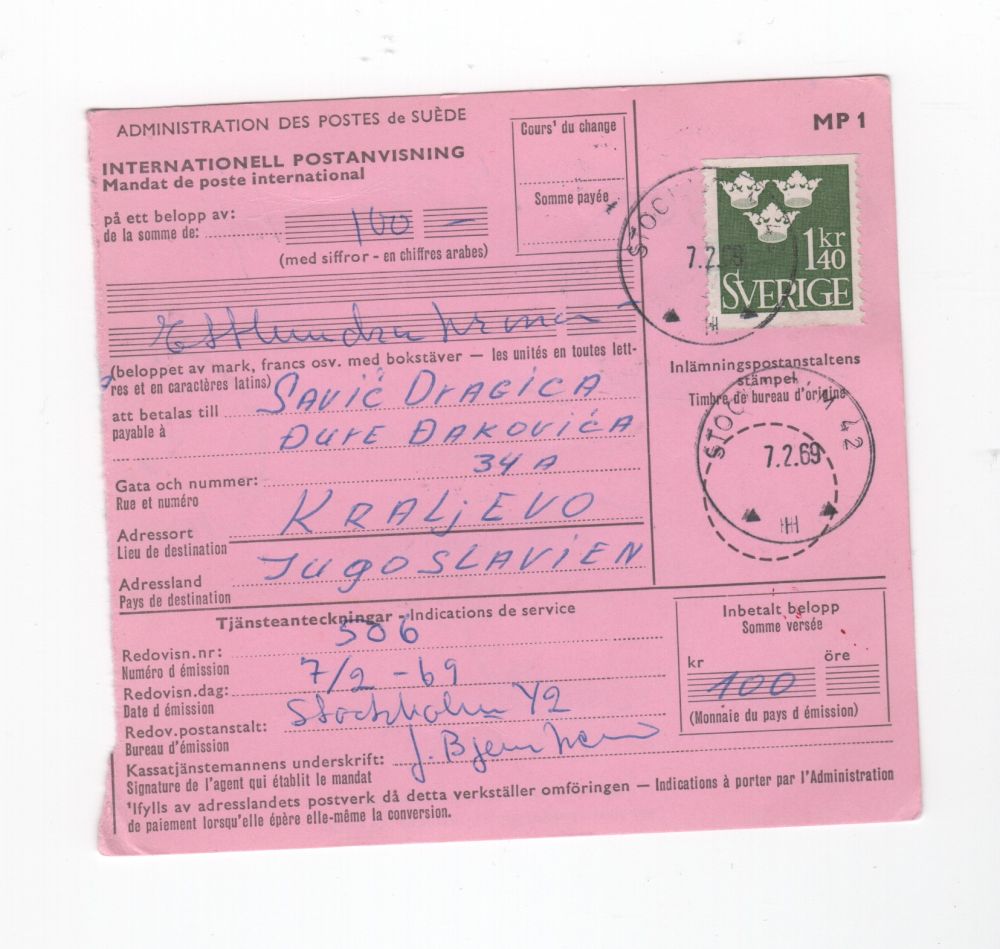 ADMINISTRATION DES POSTES de SUÈDE
MP 1
INTERNATIONELL POSTANVISNING
Mandat de poste international
Cours¹ du change
Somme payée
på ett belopp av:
de la somme de:
100 –
(med siffror - en chiffres arabes)
Etthundra kronor
(beloppet av mark, francs osv. med bokstäver — les unités en toutes lett-
res et en caractères latins)
att betalas till
payable à
SAVIĆ DRAGICA
ĐURE ĐAKOVIĆA
34 A
Gata och nummer:
Rue et numéro
Adressort
Lieu de destination
KRALjEVO
Adressland
Pays de destination
JUgOSLAVIEN
1 kr 40
SVERIGE
7.2.69
Inlämningspostanstaltens
stämpel
Timbre de bureau d'origine
42
7.2.69
Tjänsteanteckningar - Indications de service
Redovisn.nr:
Numéro d émission
506
Redovisn.dag:
Date d émission
7/2 -69
Redov.postanstalt:
Bureau d'émission
Stockholm 42
Kassatjänstemannens underskrift:
Signature de l'agent qui établit le mandat
J.
Inbetalt belopp
Somme versée
kr
öre
100
(Monnaie du pays d émission)
¹Ifylls av adresslandets postverk då detta verkställer omföringen — Indications à porter par l'Administration
de paiement lorsqu'elle épère elle-même la conversion.